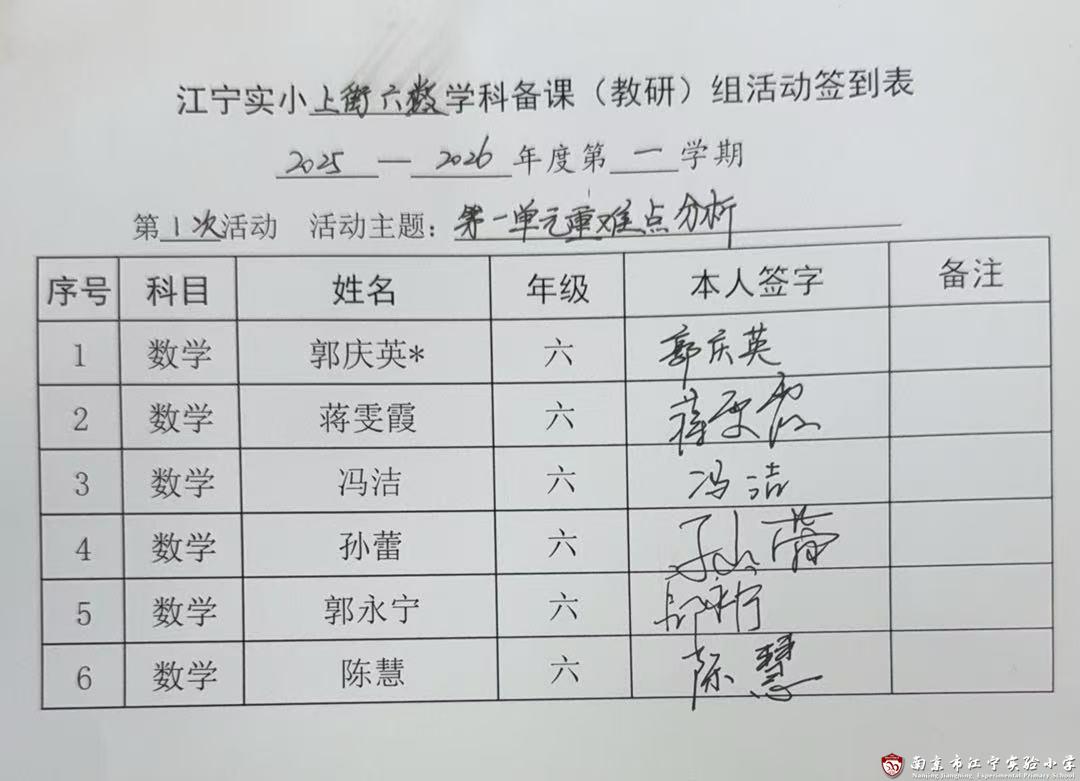 江宁实小上街六数学科备课（教研）组活动签到表
2025 — 2026 年度第 一 学期
第1次活动 活动主题：第一单元重难点分析
序号 科目 姓名 年级 本人签字 备注
1 数学 郭庆英* 六 郭庆英
2 数学 蒋雯霞 六 蒋雯霞
3 数学 冯洁 六 冯洁
4 数学 孙蕾 六 孙蕾
5 数学 郭永宁 六 郭永宁
6 数学 陈慧 六 陈慧
南京市江宁实验小学
Nanjing Jiangning Experimental Primary School